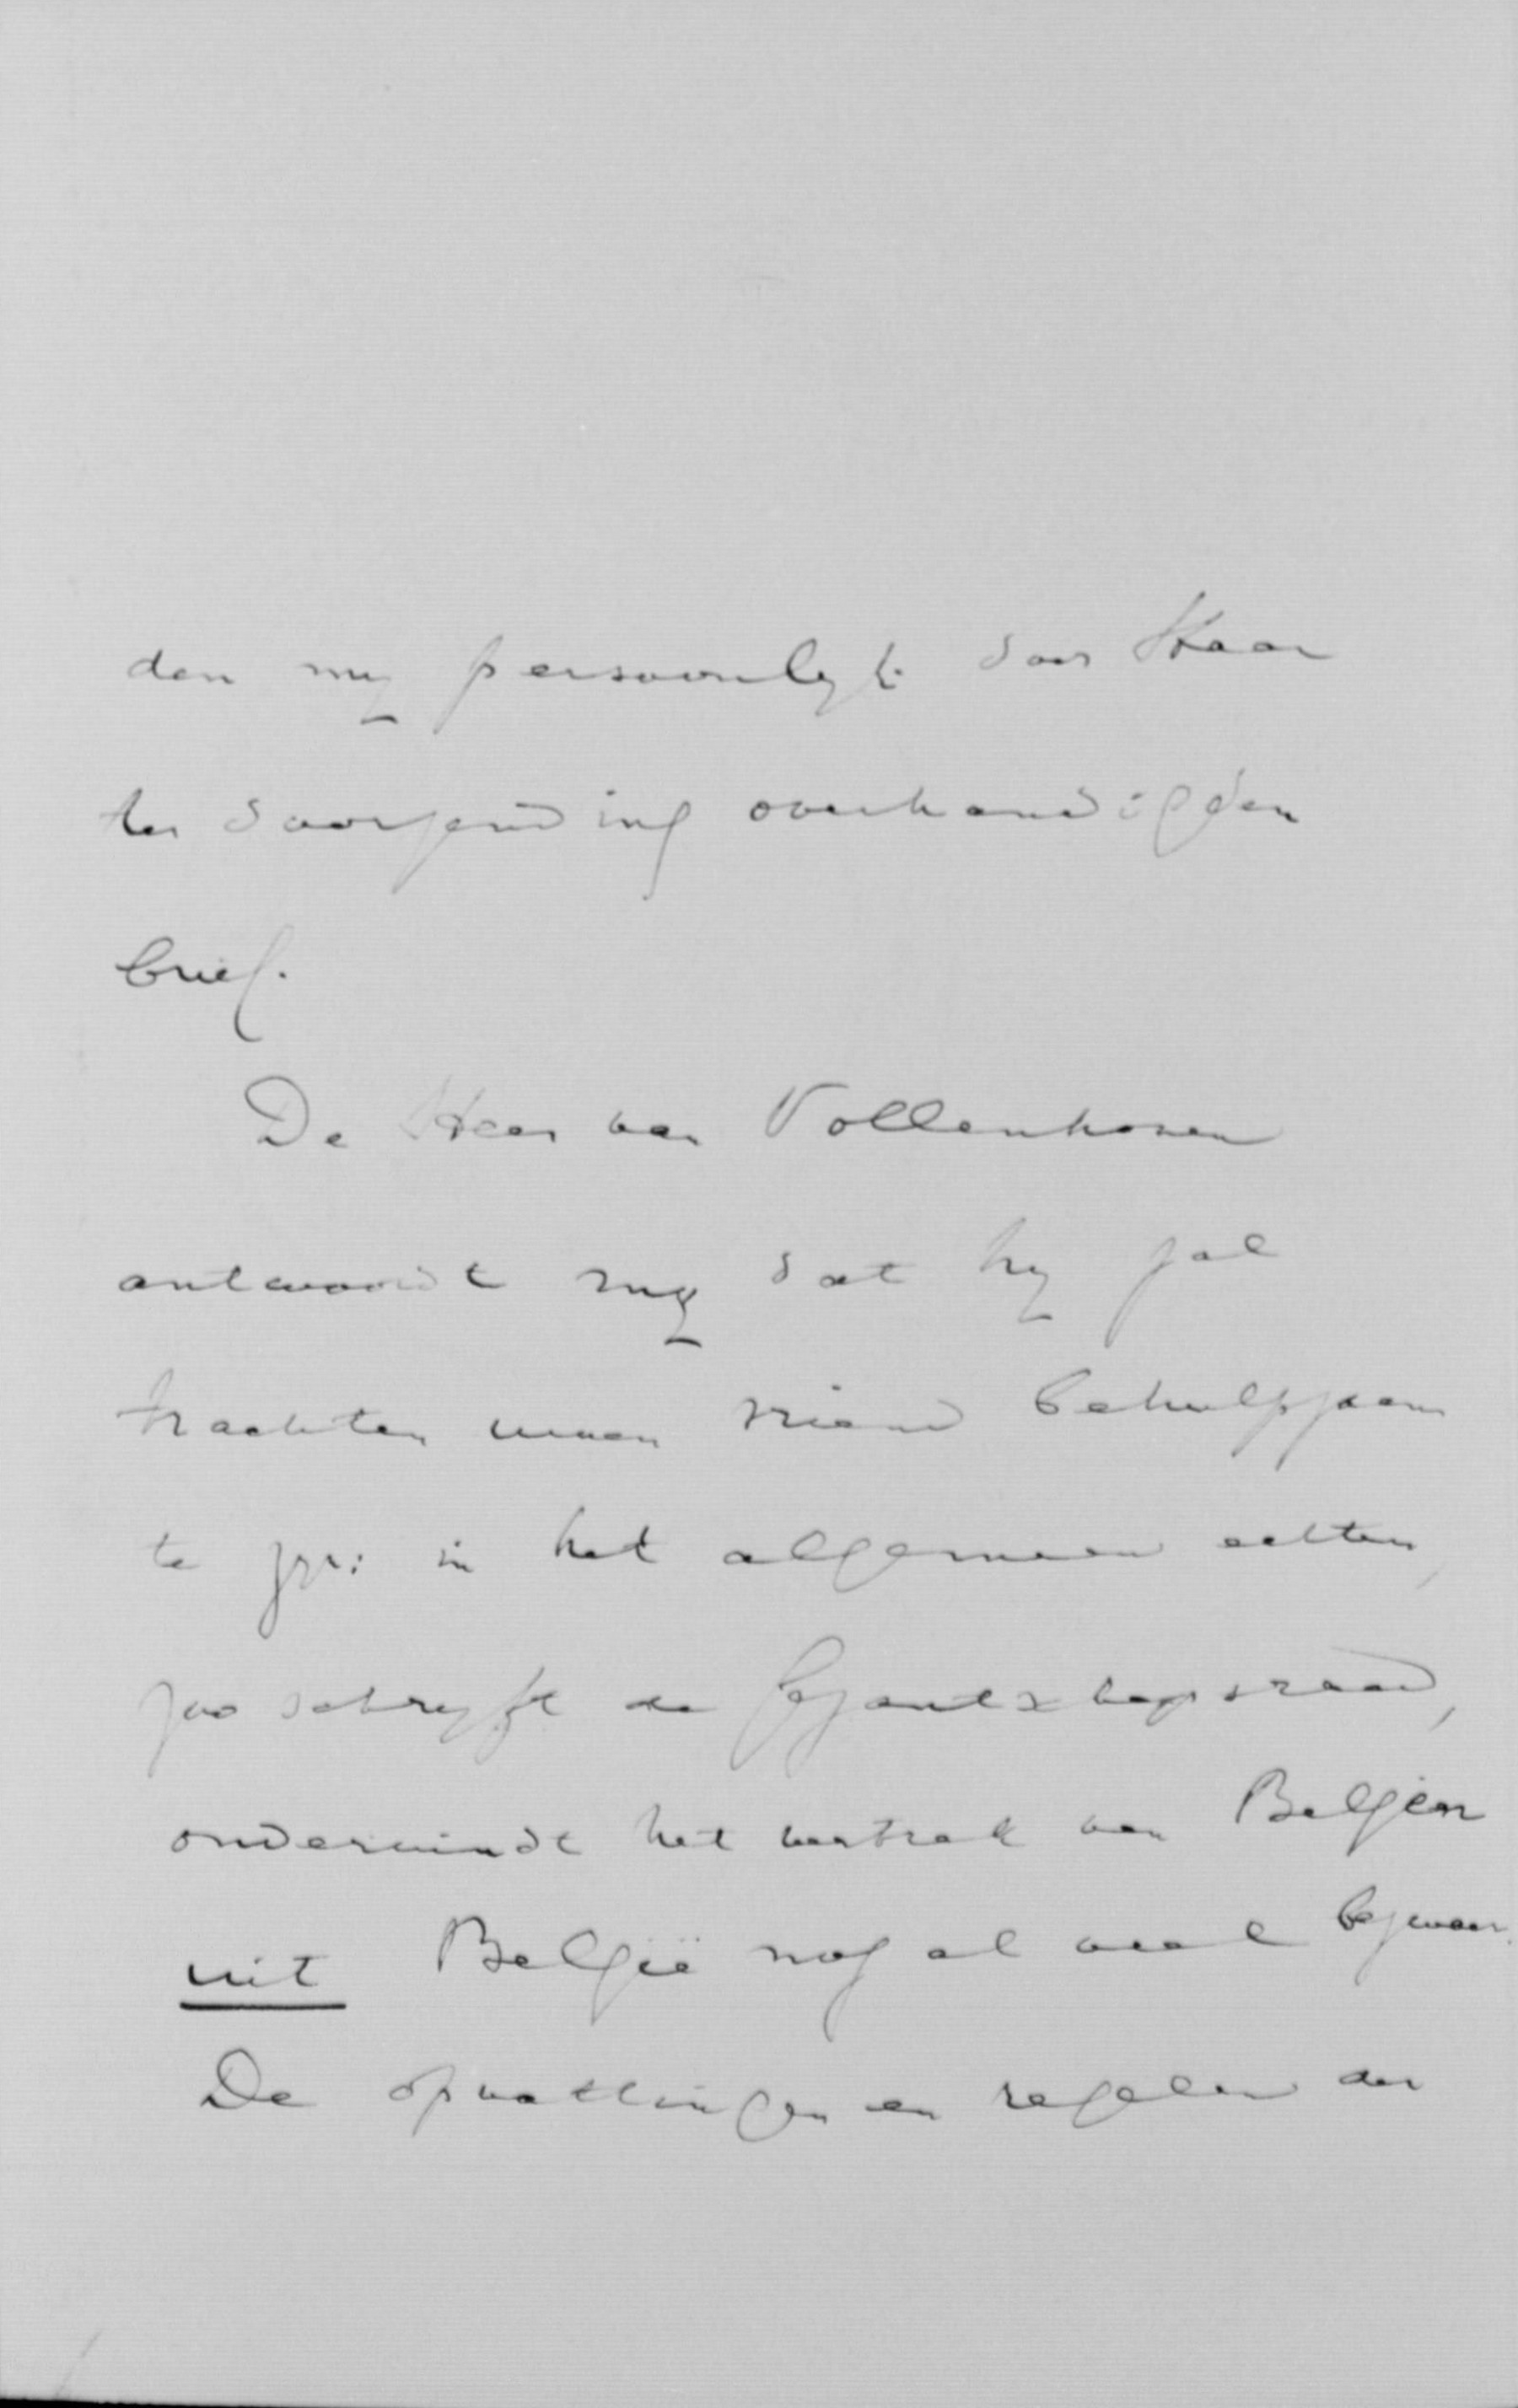 den mij persoonlijk door Haar
ter doorzending overhandigden
brief.
De Heer van Vollenhoven
antwoordt mij dat hij zal
trachten uwen vriend behulpzaam
te zijn: in het algemeen echter,
zoo schrijft de Gezantschapsraad,
ondervindt het vertrek van Belgen
uit België nog al veel bezwaar.
De opvattingen en regelen der